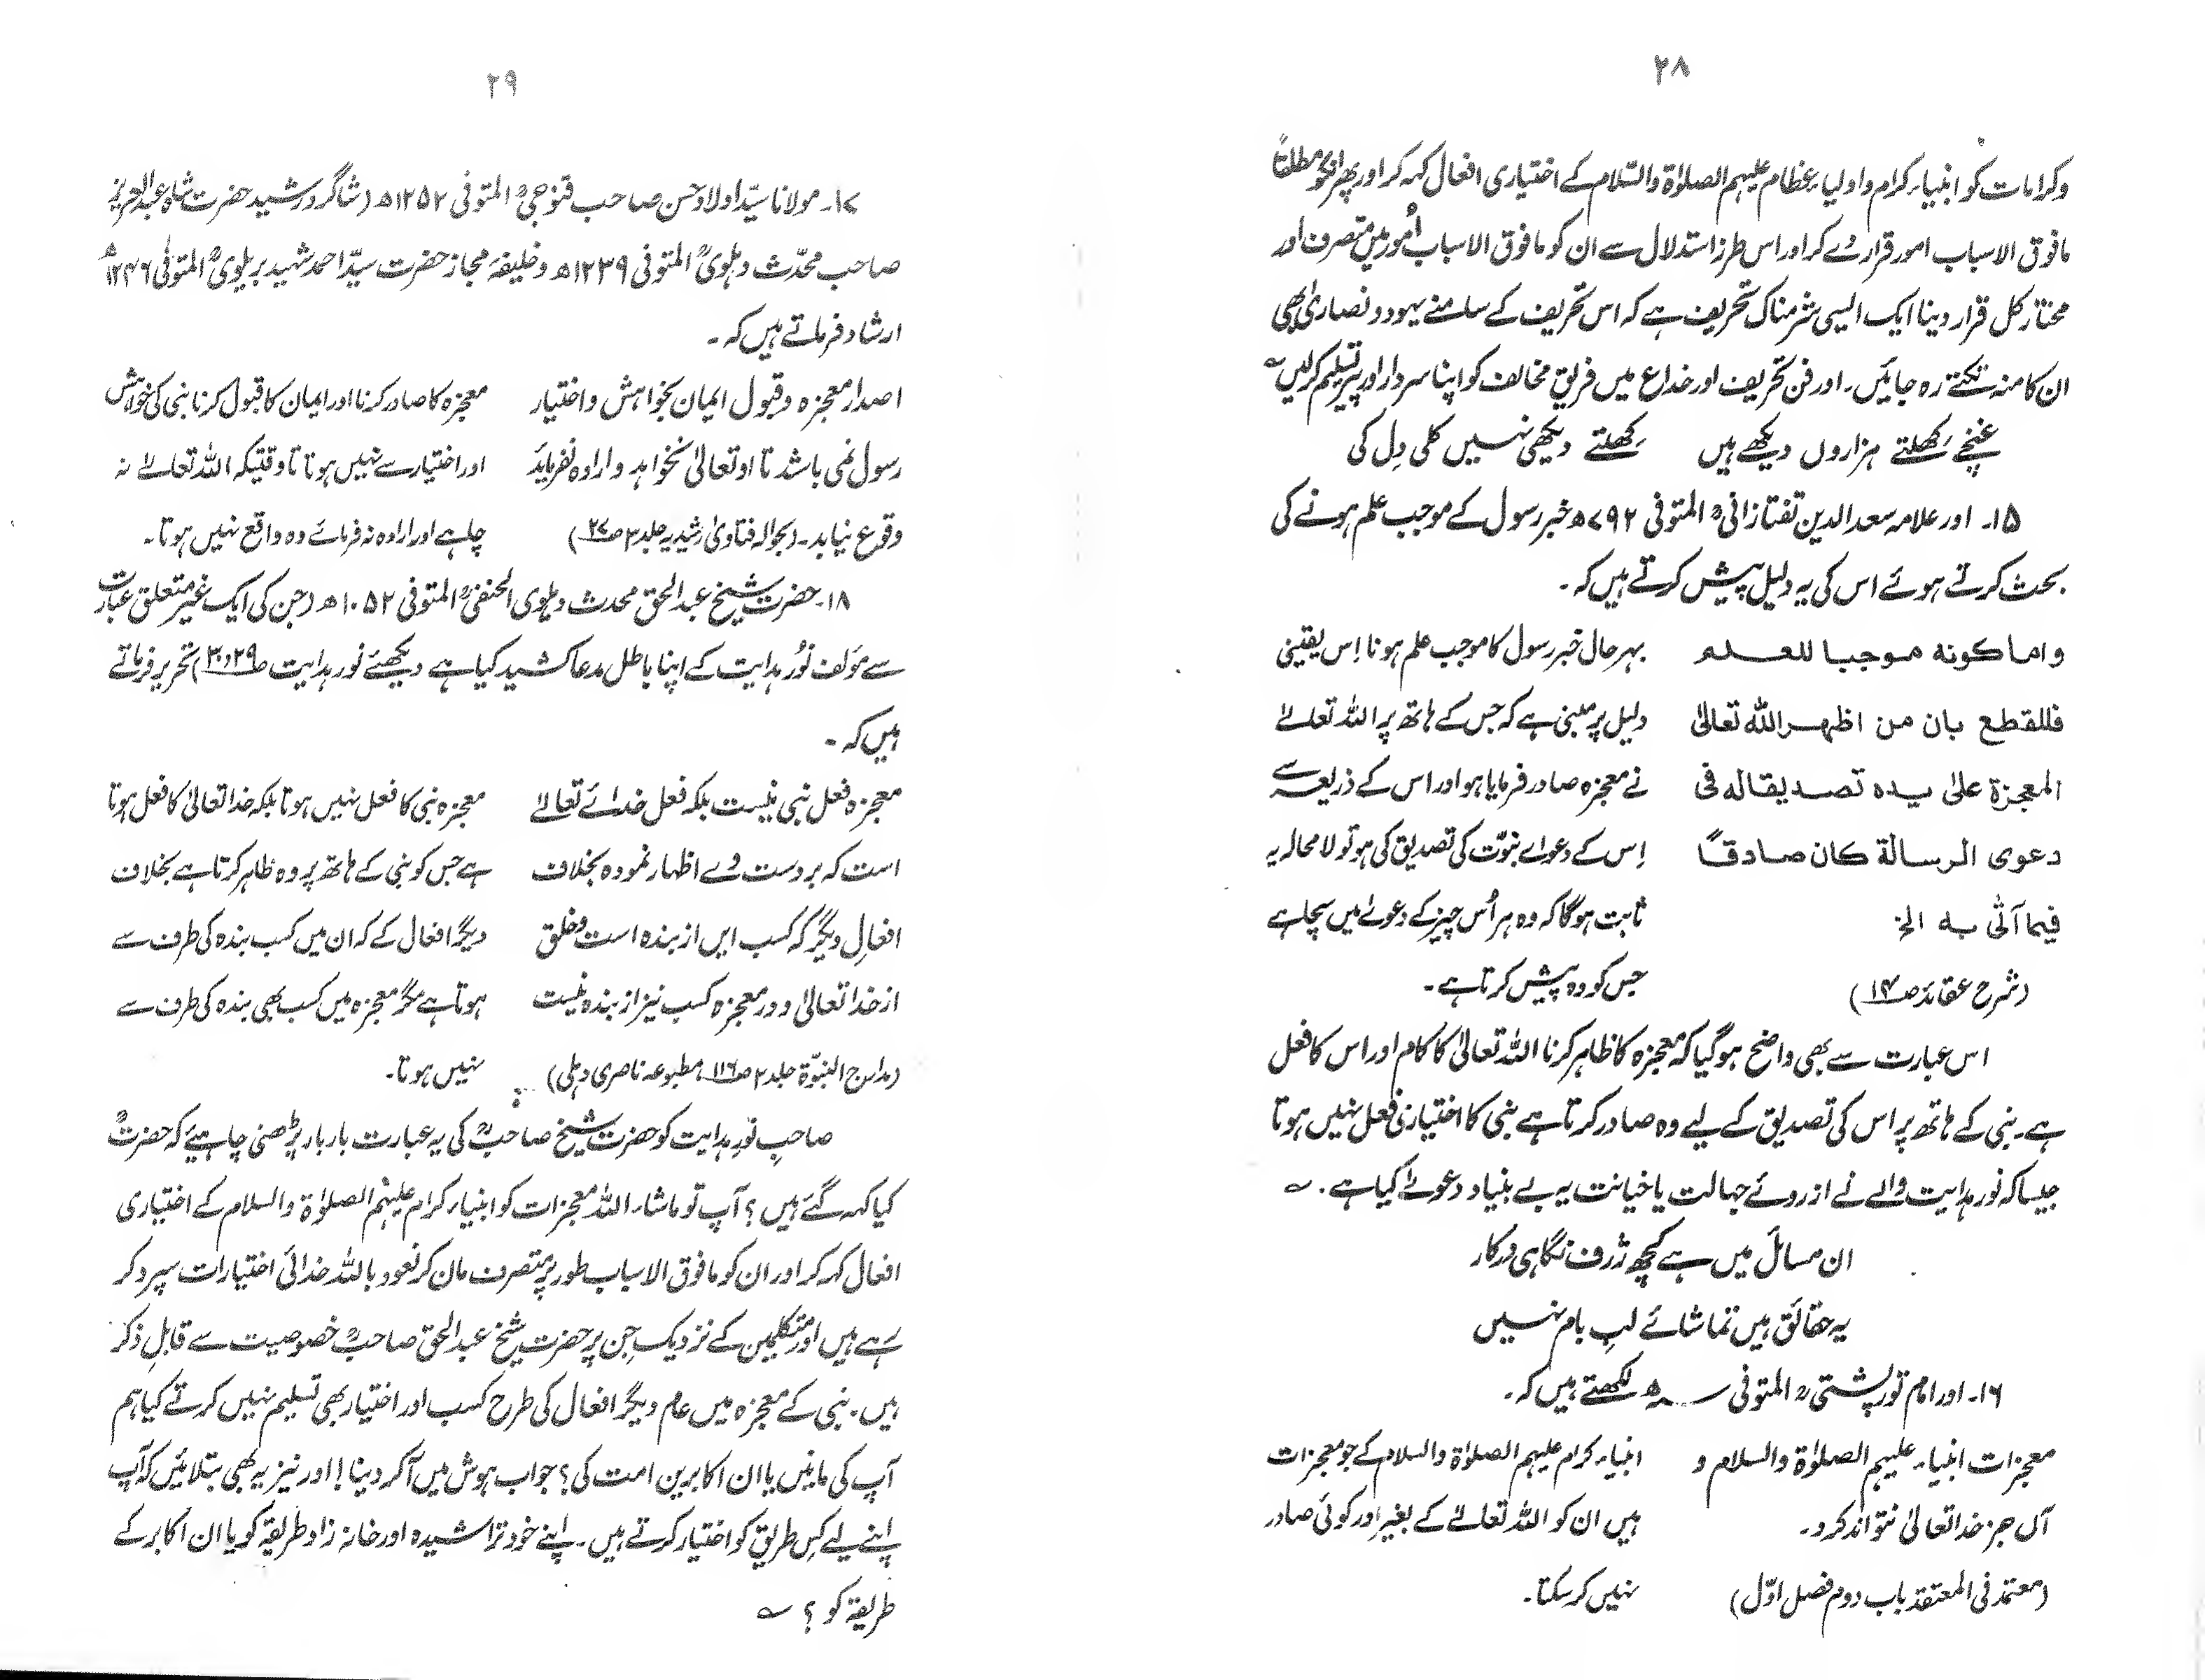 ۲۸
وکرامات کو انبیاء کرام و اولیاء عظام علیہم الصلوٰۃ والسّلام کے اختیاری افعال کہہ کر اور پھر انکو مطلقاً
مافوق الاسباب امور قرار دے کر اور اس طرز استدلال سے ان کو مافوق الاسباب اُمور میں متصرف اور
مختارِ کل قرار دینا ایک ایسی شرمناک تحریف ہے کہ اس تحریف کے سامنے یہود و نصاریٰ بھی
ان کا منہ تکتے رہ جائیں۔ اور فن تحریف اور خداع میں فریق مخالف کو اپنا سردار اور پیر تسلیم کر لیں ؎
غنچے کھلتے ہزاروں دیکھے ہیں کھلتے دیکھی نہیں کلی دِل کی
۱۵۔ اور علامہ سعد الدین تفتازانیؒ المتوفی ۷۹۲ھ خبر رسول کے موجب علم ہونے کی
بحث کرتے ہوئے اس کی یہ دلیل پیش کرتے ہیں کہ۔
واما کونه موجبا للعلم
فللقطع بان من اظهر الله تعالیٰ
المعجزة علیٰ یده تصدیقاله فی
دعوی الرسالة کان صادقًا
فیما آتٰی به الخ
(شرح عقائد صـ۱۴)
بہر حال خبر رسول کا موجب علم ہونا اِس یقینی
دلیل پر مبنی ہے کہ جس کے ہاتھ پر اللہ تعالےٰ
نے معجزہ صادر فرمایا ہو اور اس کے ذریعہ سے
اِس کے دعوٰے نبوّت کی تصدیق کی ہو تو لا محالہ یہ
ثابت ہوگا کہ وہ ہر اُس چیز کے دعوےٰ میں سچا ہے
جس کو وہ پیش کرتا ہے۔
اس عبارت سے بھی واضح ہو گیا کہ معجزہ کا ظاہر کرنا اللہ تعالیٰ کا کام اور اس کا فعل
ہے۔ نبی کے ہاتھ پر اس کی تصدیق کے لیے وہ صادر کرتا ہے نبی کا اختیاری فعل نہیں ہوتا
جیسا کہ نور ہدایت والے نے از روئے جہالت یا خیانت یہ بے بنیاد دعوےٰ کیا ہے۔ ؎
ان مسائل میں ہے کچھ ژرف نگاہی درکار
یہ حقائق ہیں تماشائے لبِ بام نہیں
۱۶۔ اور امام تورپشتیؒ المتوفی ــــھ لکھتے ہیں کہ۔
معجزات انبیاء علیہم الصلوٰۃ والسلام و
آں جز خدا تعالیٰ نتواند کرد۔
(معتمد فی المعتقد باب دوم فصل اوّل)
انبیاء کرام علیہم الصلوٰۃ والسلام کے جو معجزات
ہیں ان کو اللہ تعالےٰ کے بغیر اور کوئی صادر
نہیں کر سکتا۔
۲۹
۱۷۔ مولانا سیّد اولاد حسن صاحب قنوجیؒ المتوفی ۱۲۵۲ھ (شاگرد رشید حضرت شاہ عبدالعزیز
صاحب محدّث دہلویؒ المتوفی ۱۲۳۹ھ و خلیفۂ مجاز حضرت سیّد احمد شہید بریلویؒ المتوفی ۱۲۴۶ھ
ارشاد فرماتے ہیں کہ۔
اصدار معجزہ و قبول ایمان بخواہش و اختیار
رسول نمی باشد تا او تعالیٰ نخواہد و ارادہ نفرماید
وقوع نیابد۔ (بحوالہ فتاویٰ رشیدیہ جلد ۲ صـ۲۷)
معجزہ کا صادر کرنا اور ایمان کا قبول کرنا نبی کی خواہش
اور اختیار سے نہیں ہوتا تاوقتیکہ اللہ تعالےٰ نہ
چاہے اور ارادہ نہ فرمائے وہ واقع نہیں ہوتا۔
۱۸۔ حضرت شیخ عبد الحق محدث دہلوی الحنفیؒ المتوفی ۱۰۵۲ھ (جن کی ایک غیر متعلق عبارت
سے مؤلف نُورِ ہدایت کے اپنا باطل مدعا کشید کیا ہے دیکھئے نور ہدایت صـ۳۰،۲۹) تحریر فرماتے
ہیں کہ۔
معجزہ فعل نبی نیست بلکہ فعل خدائے تعالےٰ
است کہ بر دست وے اظہار نمودہ بخلاف
افعالِ دیگر کہ کسب ایں از بندہ است و خلق
از خدا تعالیٰ و در معجزہ کسب نیز از بندہ نیست
(مدارج النبوّۃ جلد ۲ صـ۱۱۶ مطبوعہ ناصری دہلی)
معجزہ نبی کا فعل نہیں ہوتا بلکہ خدا تعالیٰ کا فعل ہوتا
ہے جس کو نبی کے ہاتھ پر وہ ظاہر کرتا ہے بخلاف
دیگر افعال کے کہ ان میں کسب بندہ کی طرف سے
ہوتا ہے مگر معجزہ میں کسب بھی بندہ کی طرف سے
نہیں ہوتا۔
صاحبِ نُورِ ہدایت کو حضرت شیخ صاحبؒ کی یہ عبارت بار بار پڑھنی چاہیئے کہ حضرتؒ
کیا کہہ گئے ہیں؟ آپ تو ماشاء اللہ معجزات کو انبیاء کرام علیہم الصلوٰۃ والسلام کے اختیاری
افعال کہہ کر اور ان کو مافوق الاسباب طور پر متصرف مان کر نعوذ باللہ خدائی اختیارات سپرد کر
رہے ہیں اور متکلمین کے نزدیک جن پر حضرت شیخ عبد الحق صاحبؒ خصوصیت سے قابلِ ذکر
ہیں۔ نبی کے معجزہ میں عام دیگر افعال کی طرح کسب اور اختیار بھی تسلیم نہیں کرتے کیا ہم
آپ کی مانیں یا ان اکابرین امت کی؟ جواب ہوش میں آکر دینا! اور نیز یہ بھی بتلائیں کہ آپ
اپنے لیے کس طریق کو اختیار کرتے ہیں۔ اپنے خود تراشیدہ اور خانہ زاد طریقہ کو یا ان اکابر کے
طریقہ کو؟ ؎